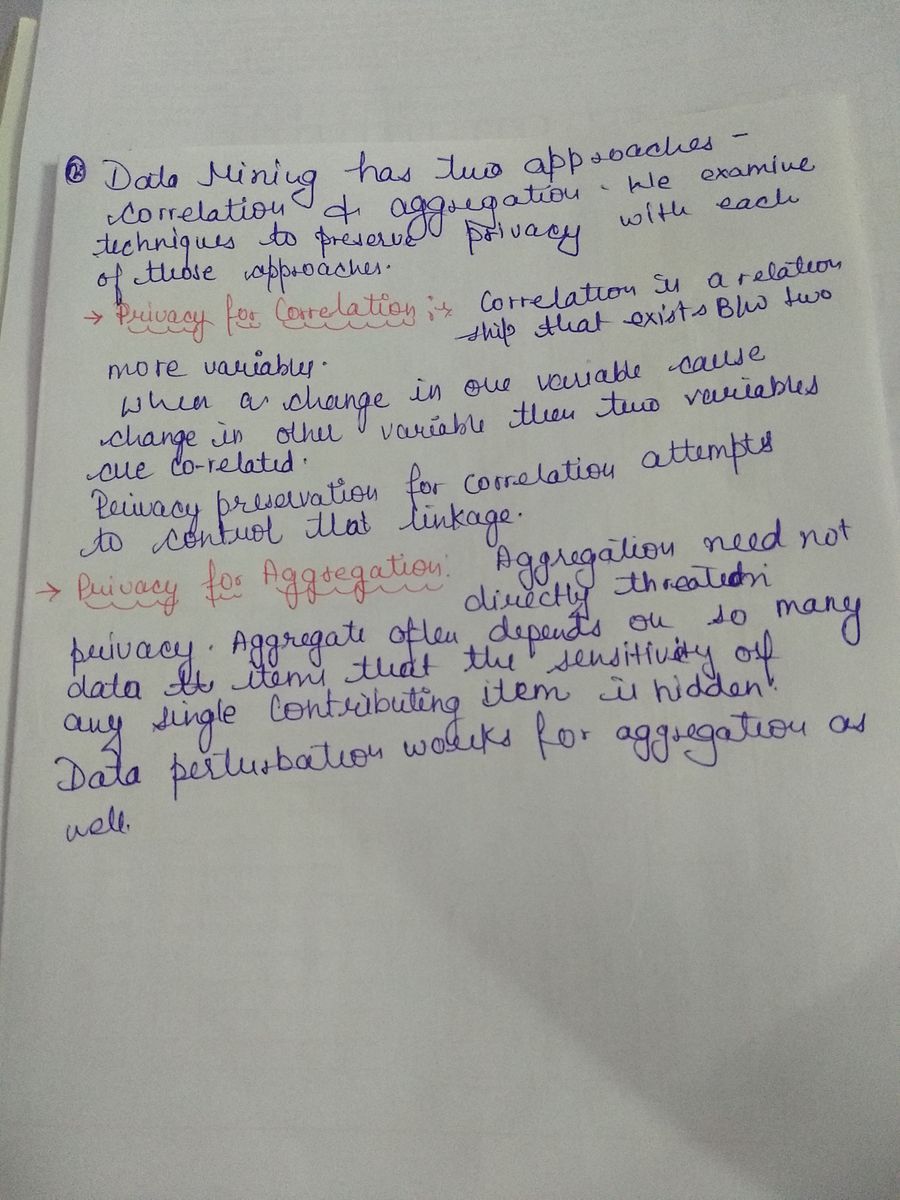 ② Data Mining has two approaches -
correlation & aggregation. We examine
techniques to preserve privacy with each
of those approaches.
→ Privacy for Correlation :- Correlation is a relation
ship that exists B/w two
more variables.
When a change in one variable cause
change in other variable then two variables
are co-related.
Privacy preservation for correlation attempts
to control that linkage.
→ Privacy for Aggregation: Aggregation need not
directly threaten
privacy. Aggregate often depends on so many
data items that the sensitivity of
any single contributing item is hidden.
Data perturbation works for aggregation as
well.